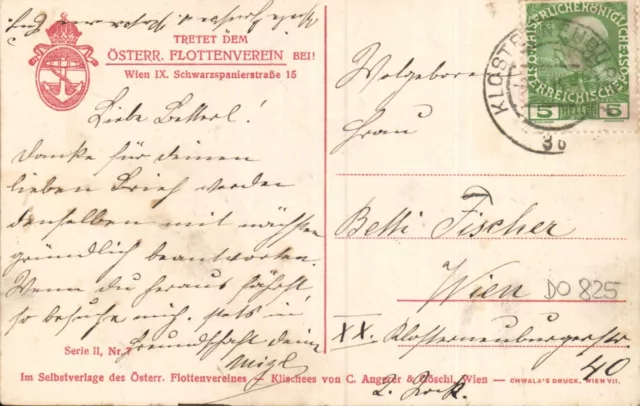 TRETET DEM
ÖSTERR. FLOTTENVEREIN BEI!
Wien IX. Schwarzspanierstraße 15
Liebe Betterl!
Danke für deinen
lieben Brief werden
denselben mit nächsten
gründlich beantworten.
Wenn du heraus fährst
so besuche mich. stets in
Freundschaft deine
Mizl
Serie II, Nr. 7
Wolgeboren
Frau
Betti Fischer
Wien
DO 825
XX. Klosterneuburgerstr
40
KLOSTERNEUBURG
3b
KAISERLICHE KÖNIGLICHE
ÖSTERREICHISCHE
5 HELLER 5
Im Selbstverlage des Österr. Flottenvereines — Klischees von C. Angerer & Göschl, Wien — CHWALA'S DRUCK, WIEN VII.